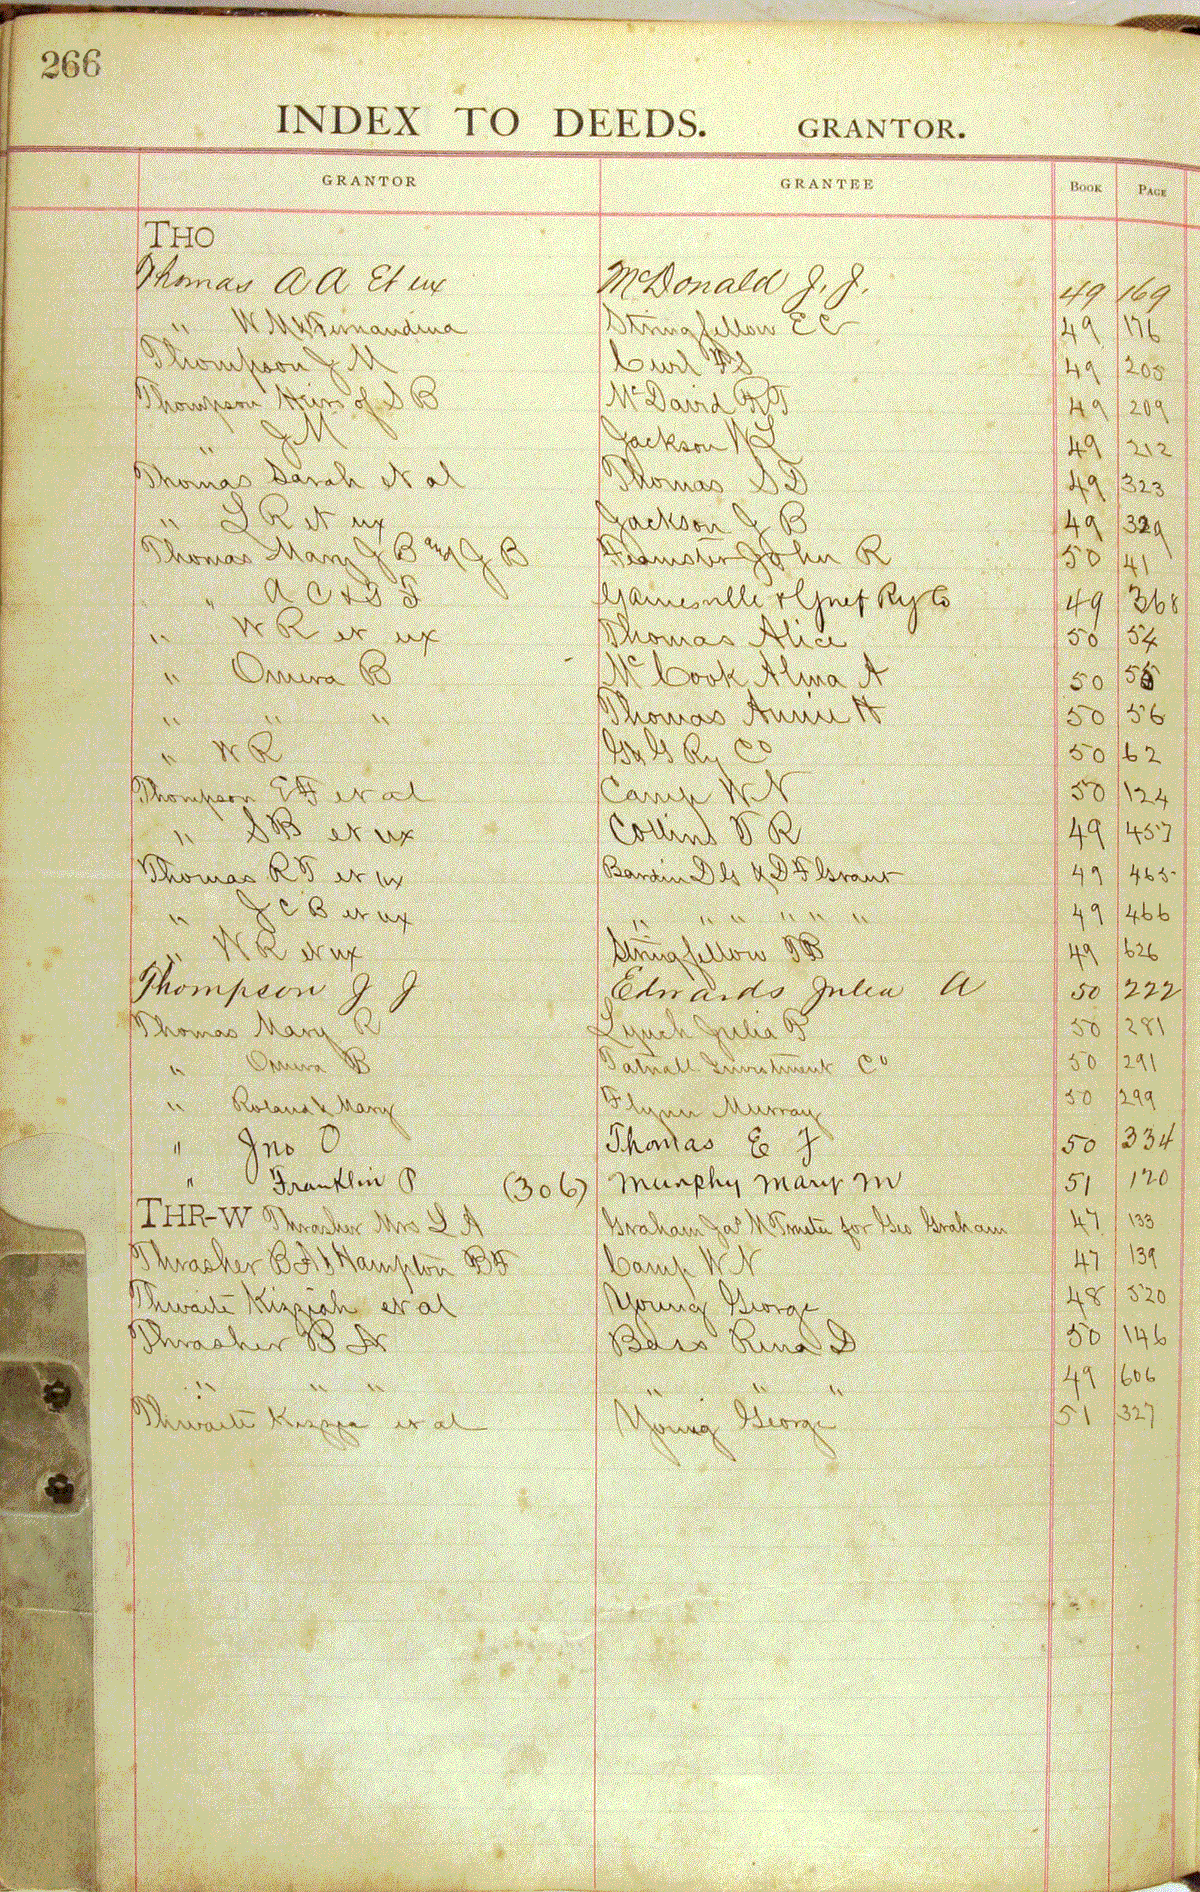 266
INDEX TO DEEDS. GRANTOR.
GRANTOR GRANTEE BOOK PAGE
THO
Thomas A A Et ux McDonald J. J. 49 169
" W M & Fernandina Stringfellow E C 49 176
Thompson J M Curl F S 49 205
Thompson Heirs of S B McDavid R T 49 209
" J M Jackson W L 49 212
Thomas Sarah et al Thomas S D 49 323
" L R et ux Jackson J B 49 329
Thomas Mary J B and J B Feamster John R 50 41
" " A C & S F Gainesville & Gulf Ry Co 49 368
" W R et ux Thomas Alice 50 54
" Omera B McCook Alina A 50 55
" " " Thomas Annie H 50 56
" W R G & G Ry Co 50 62
Thompson E F et al Camp W N 50 124
" S B et ux Collins V R 49 457
Thomas R T et ux Bardin D G & D F Grant 49 465
" J C B et ux " " " " " " 49 466
" W R et ux Stringfellow T B 49 626
Thompson J J Edwards Julia A 50 222
Thomas Mary R Lynch Julia P 50 281
" Omera B Tatnall Investment Co 50 291
" Roland & Mary Flynn Murray 50 299
" Jno O Thomas E J 50 334
" Franklin P (306) Murphy Mary M 51 120
THR-W Thrasher Mrs L A Graham Jas M Trustee for Geo Graham 47 133
Thrasher B A & Hampton B F Camp W N 47 139
Thwaite Kizziah et al Young George 48 520
Thrasher B A Bass Rena D 50 146
" " " " " " 49 606
Thwaite Kizzia et al Young George 51 327